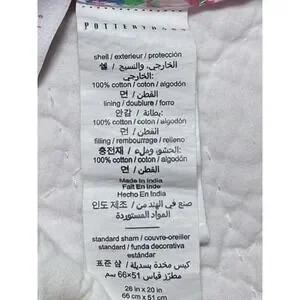 POTTERY BARN
shell / exterieur / protección
الخارجي، والنسيج / 쉘
الخارجي:
100% cotton / coton / algodón
القطن / 면
lining / doublure / forro
بطانة: / 안감
100% cotton / coton / algodón
القطن / 면
filling / rembourrage / relleno
الحشو وملء: / 충전재
100% cotton / coton / algodón
القطن / 면
Made In India
Fait En Inde
Hecho En India
صنع في الهند من / 인도 제조
المواد المستوردة
standard sham / couvre-oreiller
standard / funda decorativa
estándar
كيس مخدة بسديلة / 표준 샴
مطرّز قياس 51×66 سم
26 in x 20 in
66 cm x 51 cm